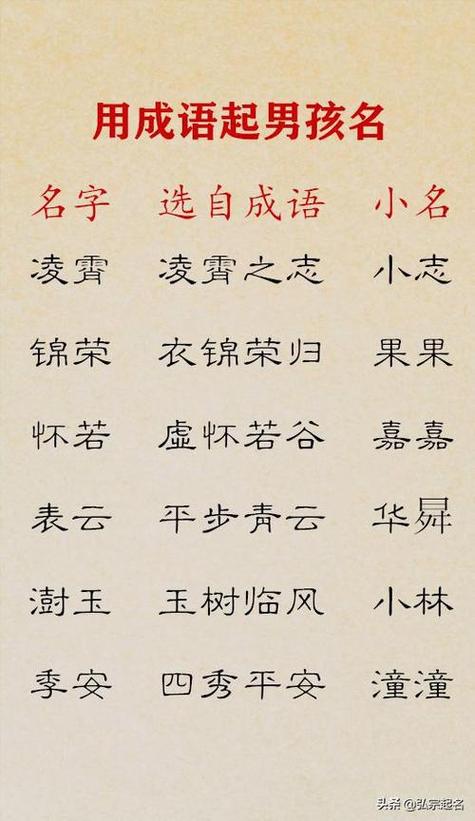 用成语起男孩名
名字 选自成语 小名
凌霄 凌霄之志 小志
锦荣 衣锦荣归 果果
怀若 虚怀若谷 嘉嘉
表云 平步青云 华曻
澍玉 玉树临风 小林
季安 四秀平安 潼潼
头条 @弘宗起名